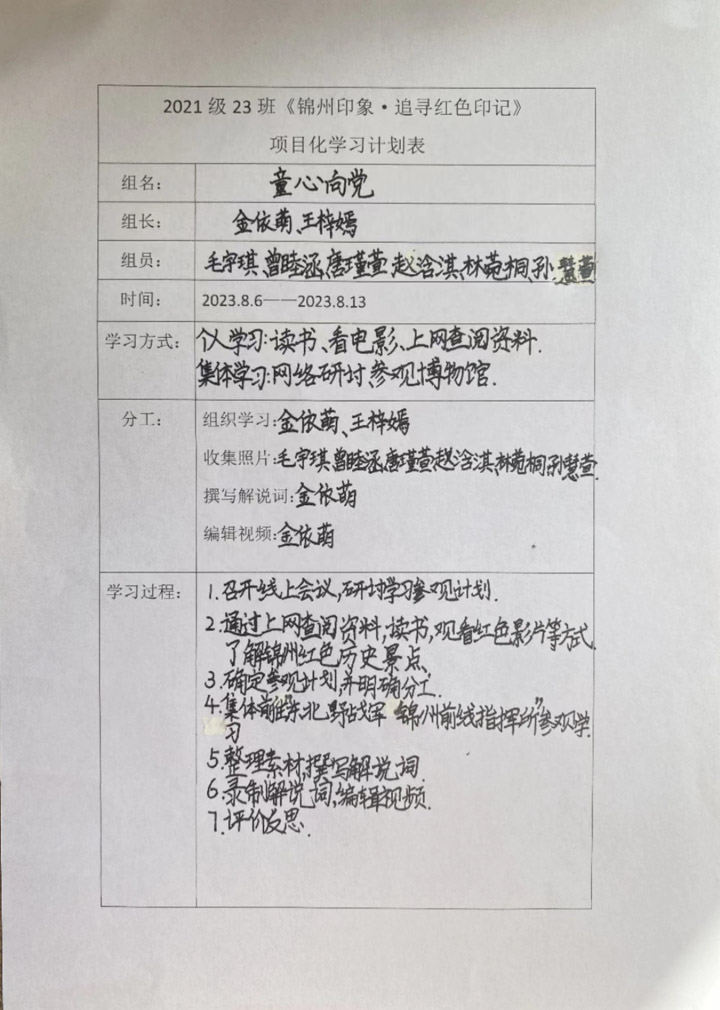 2021 级 23 班《锦州印象·追寻红色印记》
项目化学习计划表
组名： 童心向党
组长： 金依萌、王梓嫣
组员： 毛宇琪、曾睦涵、唐瑾萱、赵浛淇、林菀桐、孙慧萱
时间： 2023.8.6——2023.8.13
学习方式： 个人学习：读书、看电影、上网查阅资料.
集体学习：网络研讨、参观博物馆.
分工： 组织学习：金依萌、王梓嫣
收集照片：毛宇琪、曾睦涵、唐瑾萱、赵浛淇、林菀桐、孙慧萱.
撰写解说词：金依萌
编辑视频：金依萌
学习过程： 1.召开线上会议，研讨学习参观计划.
2.通过上网查阅资料，读书，观看红色影片等方式.
了解锦州红色历史景点、
3.确定参观计划，并明确分工.
4.集体前往“东北野战军 锦州前线指挥所”参观学
习
5.整理素材，撰写解说词.
6.录制解说词，编辑视频.
7.评价反思.